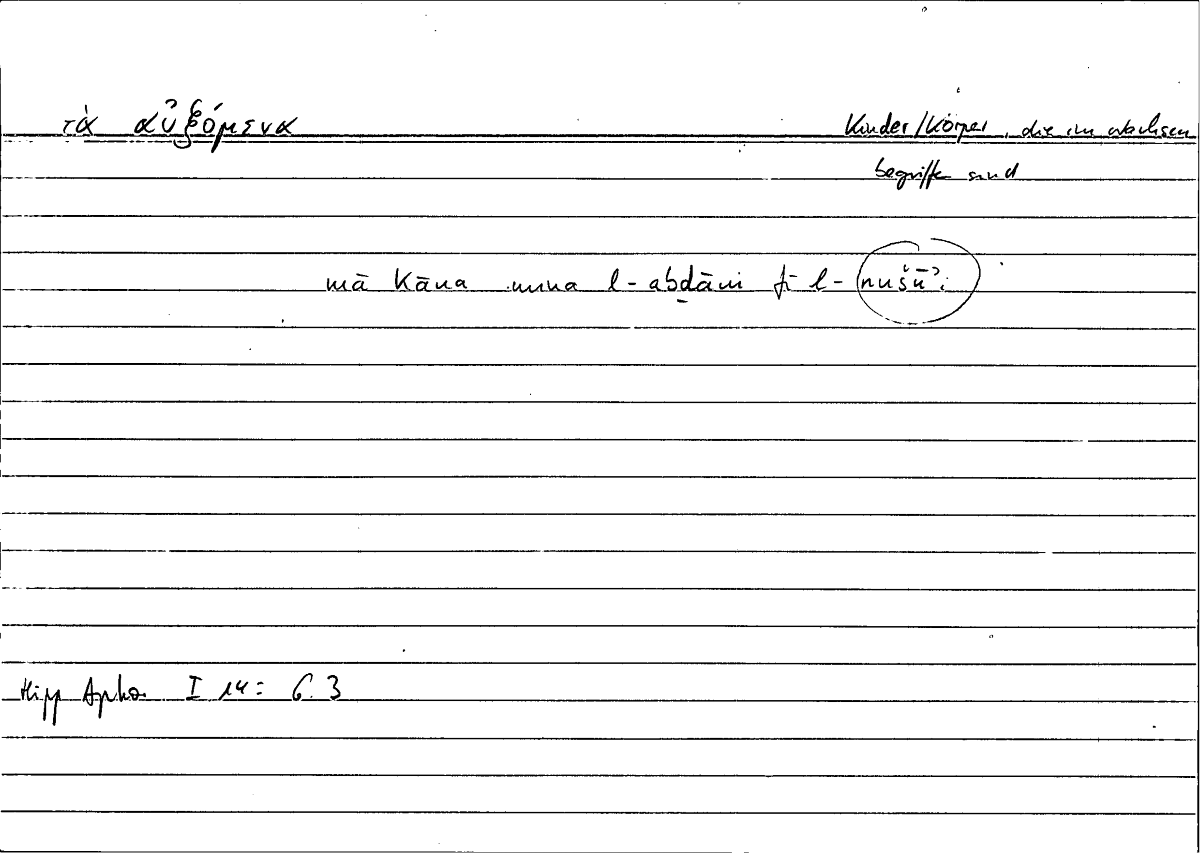 τὰ αὐξόμενα
Kinder/Körper, die im wachsen
begriffen sind
mā kāna mina l-abdāni fī l-nušūʾi
Hipp Apho. I 14 = 6.3